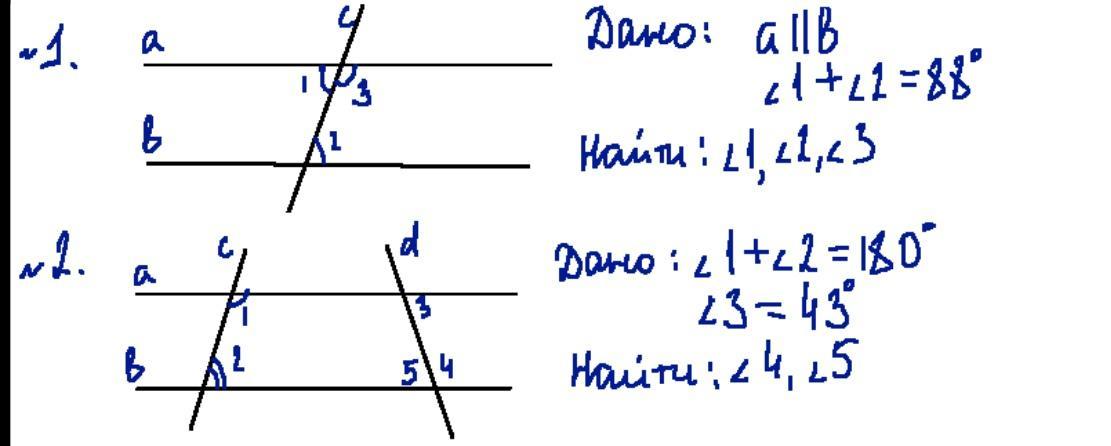 №1.
a
c
1 3
b
2
Дано: a||b
∠1+∠2=88°
Найти: ∠1,∠2,∠3
№2.
c
d
a
1
3
b
2
5 4
Дано: ∠1+∠2=180°
∠3=43°
Найти: ∠4,∠5